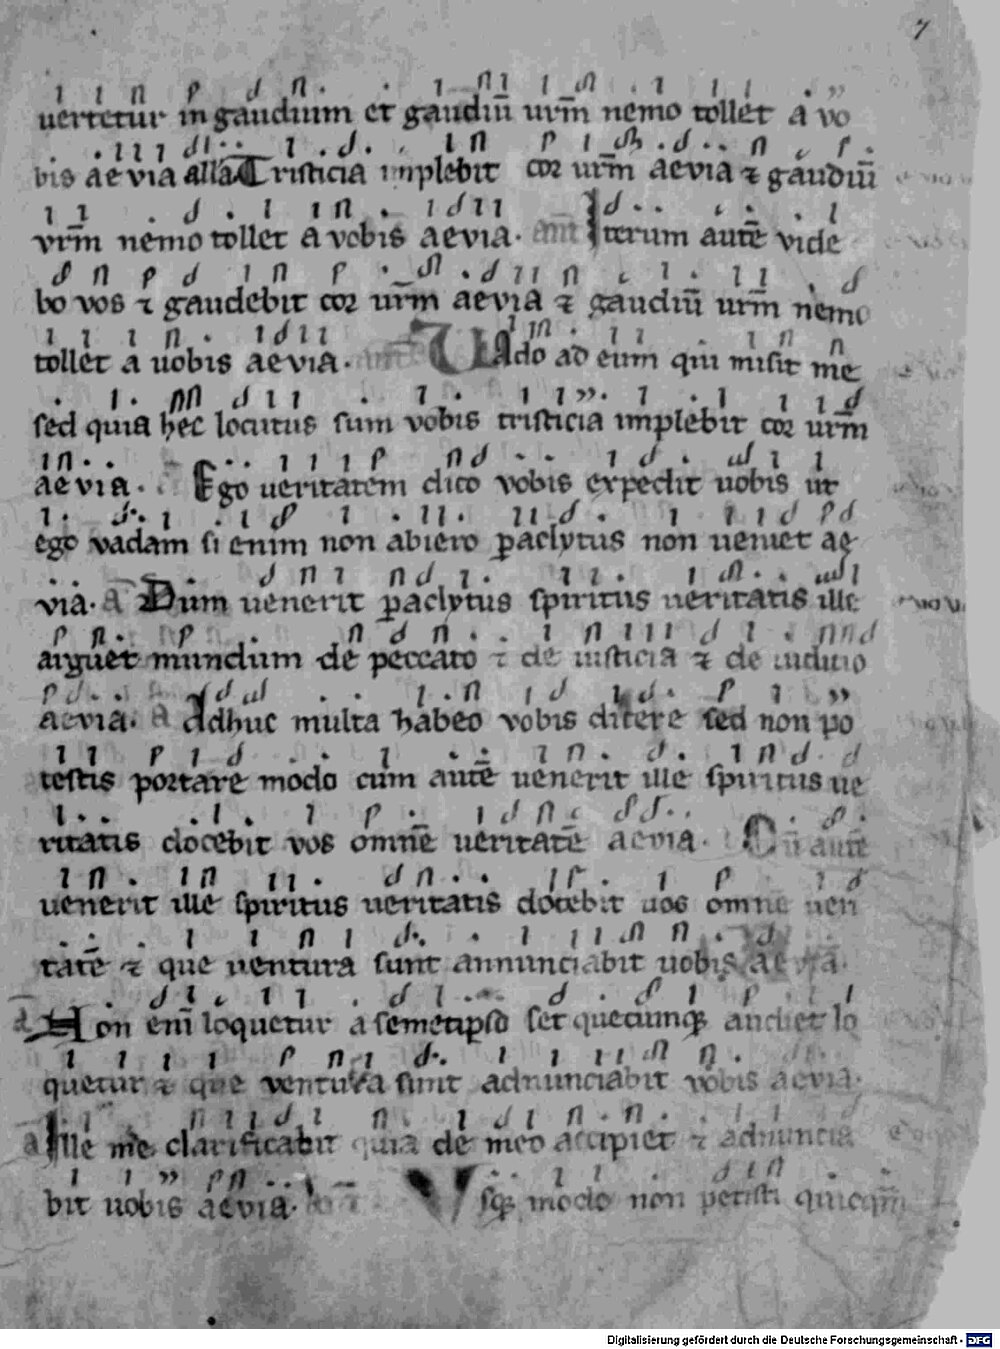 7
uertetur in gaudium et gaudiū urm̄ nemo tollet a vo
bis aevia allā Tristicia implebit cor urm̄ aevia ⁊ gaudiū
vrm̄ nemo tollet a vobis aevia. ant Iterum autē vide
bo vos ⁊ gaudebit cor urm̄ aevia ⁊ gaudiū urm̄ nemo
tollet a uobis aevia. UAdo ad eum qui misit me
sed quia hec locutus sum vobis tristicia implebit cor urm̄
aevia. Ego ueritatem dico vobis expedit uobis ut
ego vadam si enim non abiero ꝑaclytus non ueniet ae
via. a Dum uenerit ꝑaclytus spiritus ueritatis ille
arguet mundum de peccato ⁊ de iusticia ⁊ de iuditio
aevia. a Adhuc multa habeo vobis dicere sed non po
testis portare modo cum autē uenerit ille spiritus ue
ritatis docebit vos omnē ueritatē aevia. Cū autē
uenerit ille spiritus ueritatis docebit uos omnē ueri
tatē ⁊ que ventura sunt annunciabit uobis aevia.
a Non eni̅ loquetur a semetipso set quecumqꝫ audiet lo
quetur ⁊ que ventura sunt adnunciabit vobis aevia.
a Ille me clarificabit quia de meo accipiet ⁊ adnuncia
bit uobis aevia. Vsqꝫ modo non petisti quicqm̄
Digitalisierung gefördert durch die Deutsche Forschungsgemeinschaft - DFG